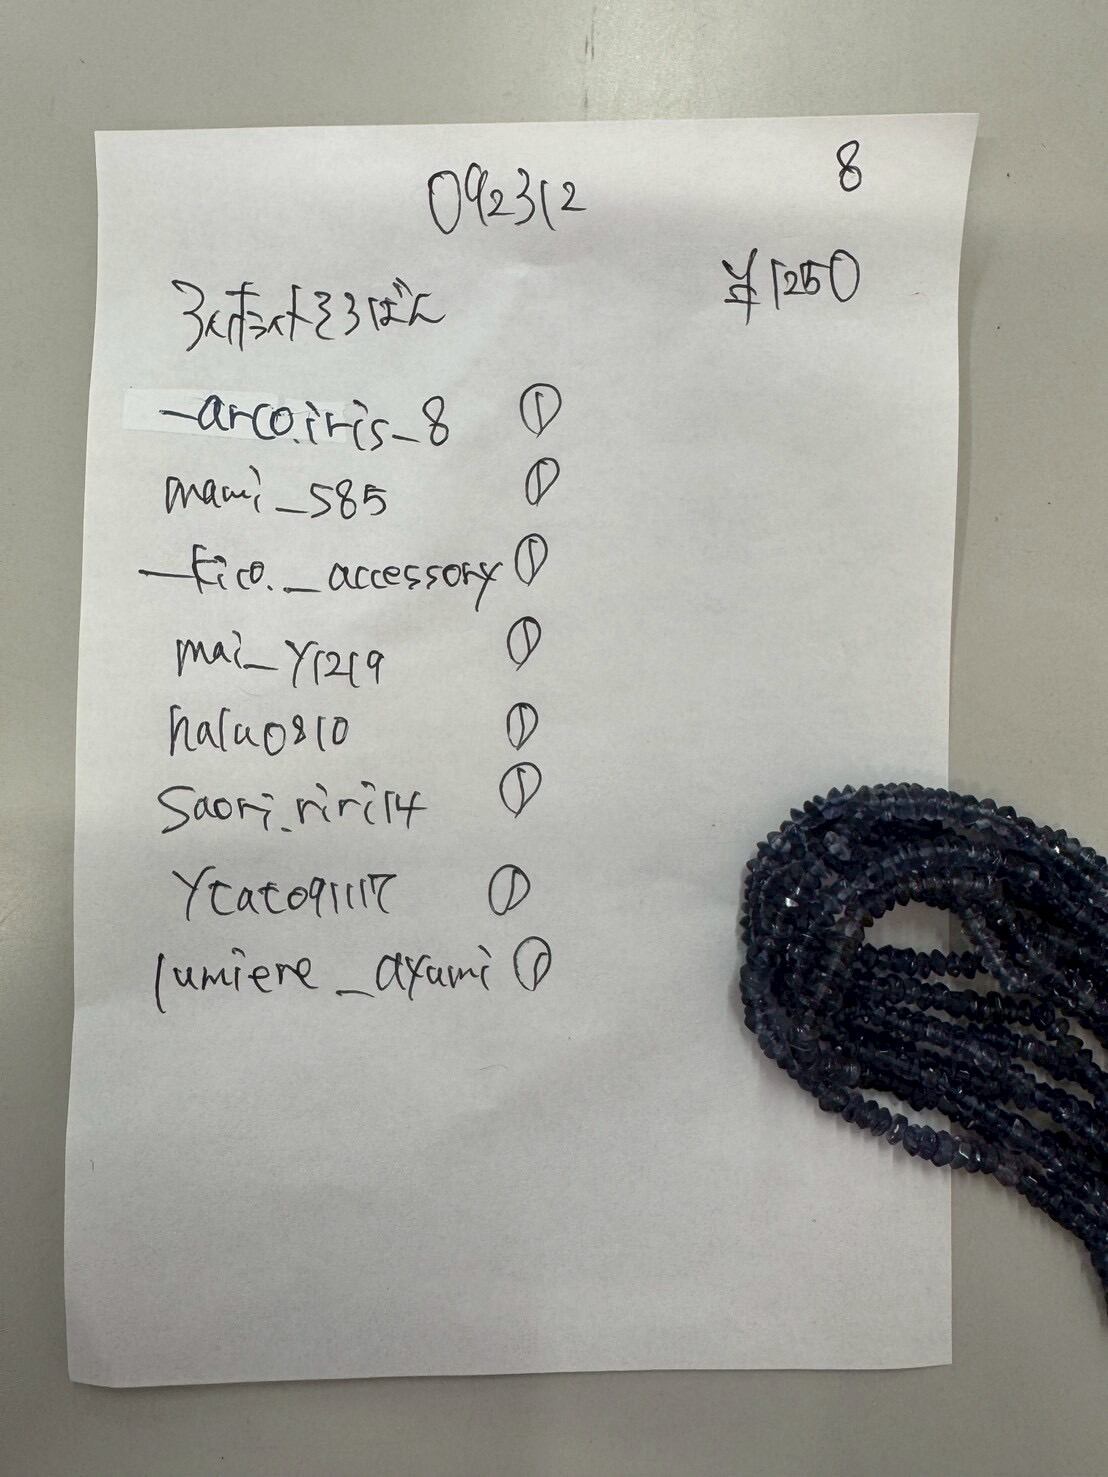 092312
8
¥1250
そろばん
_arco.iris_8 ①
mami_585 ①
_kico._accessory ①
mai_y1219 ①
halu0810 ①
Saori.riri14 ①
Ytato91117 ①
lumiere_ayumi ①